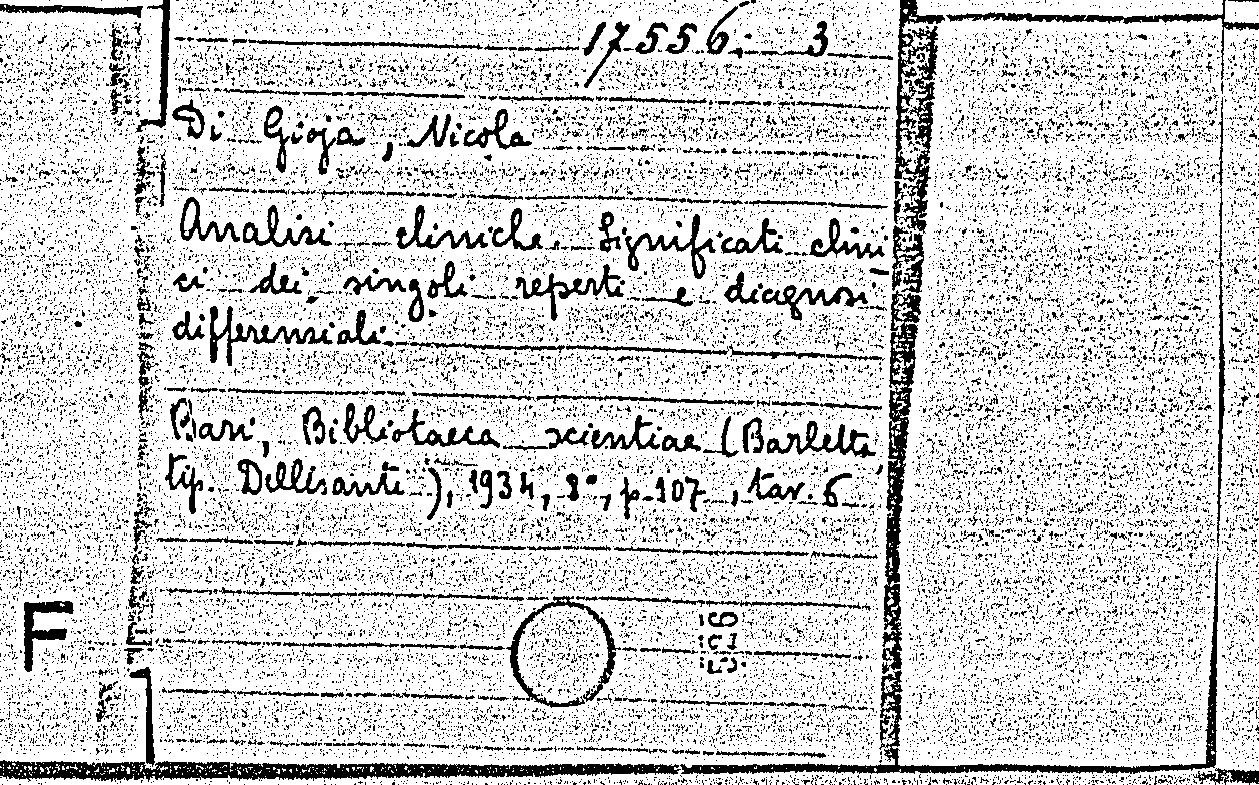 17556. 3
Di Gioja, Nicola
Analisi cliniche. Significati clini-
ci dei singoli reperti e diagnosi
differenziali.
Bari, Bibliotaeca scientiae (Barletta,
tip. Dellisanti), 1934, 8°, p. 107, tav. 6
F